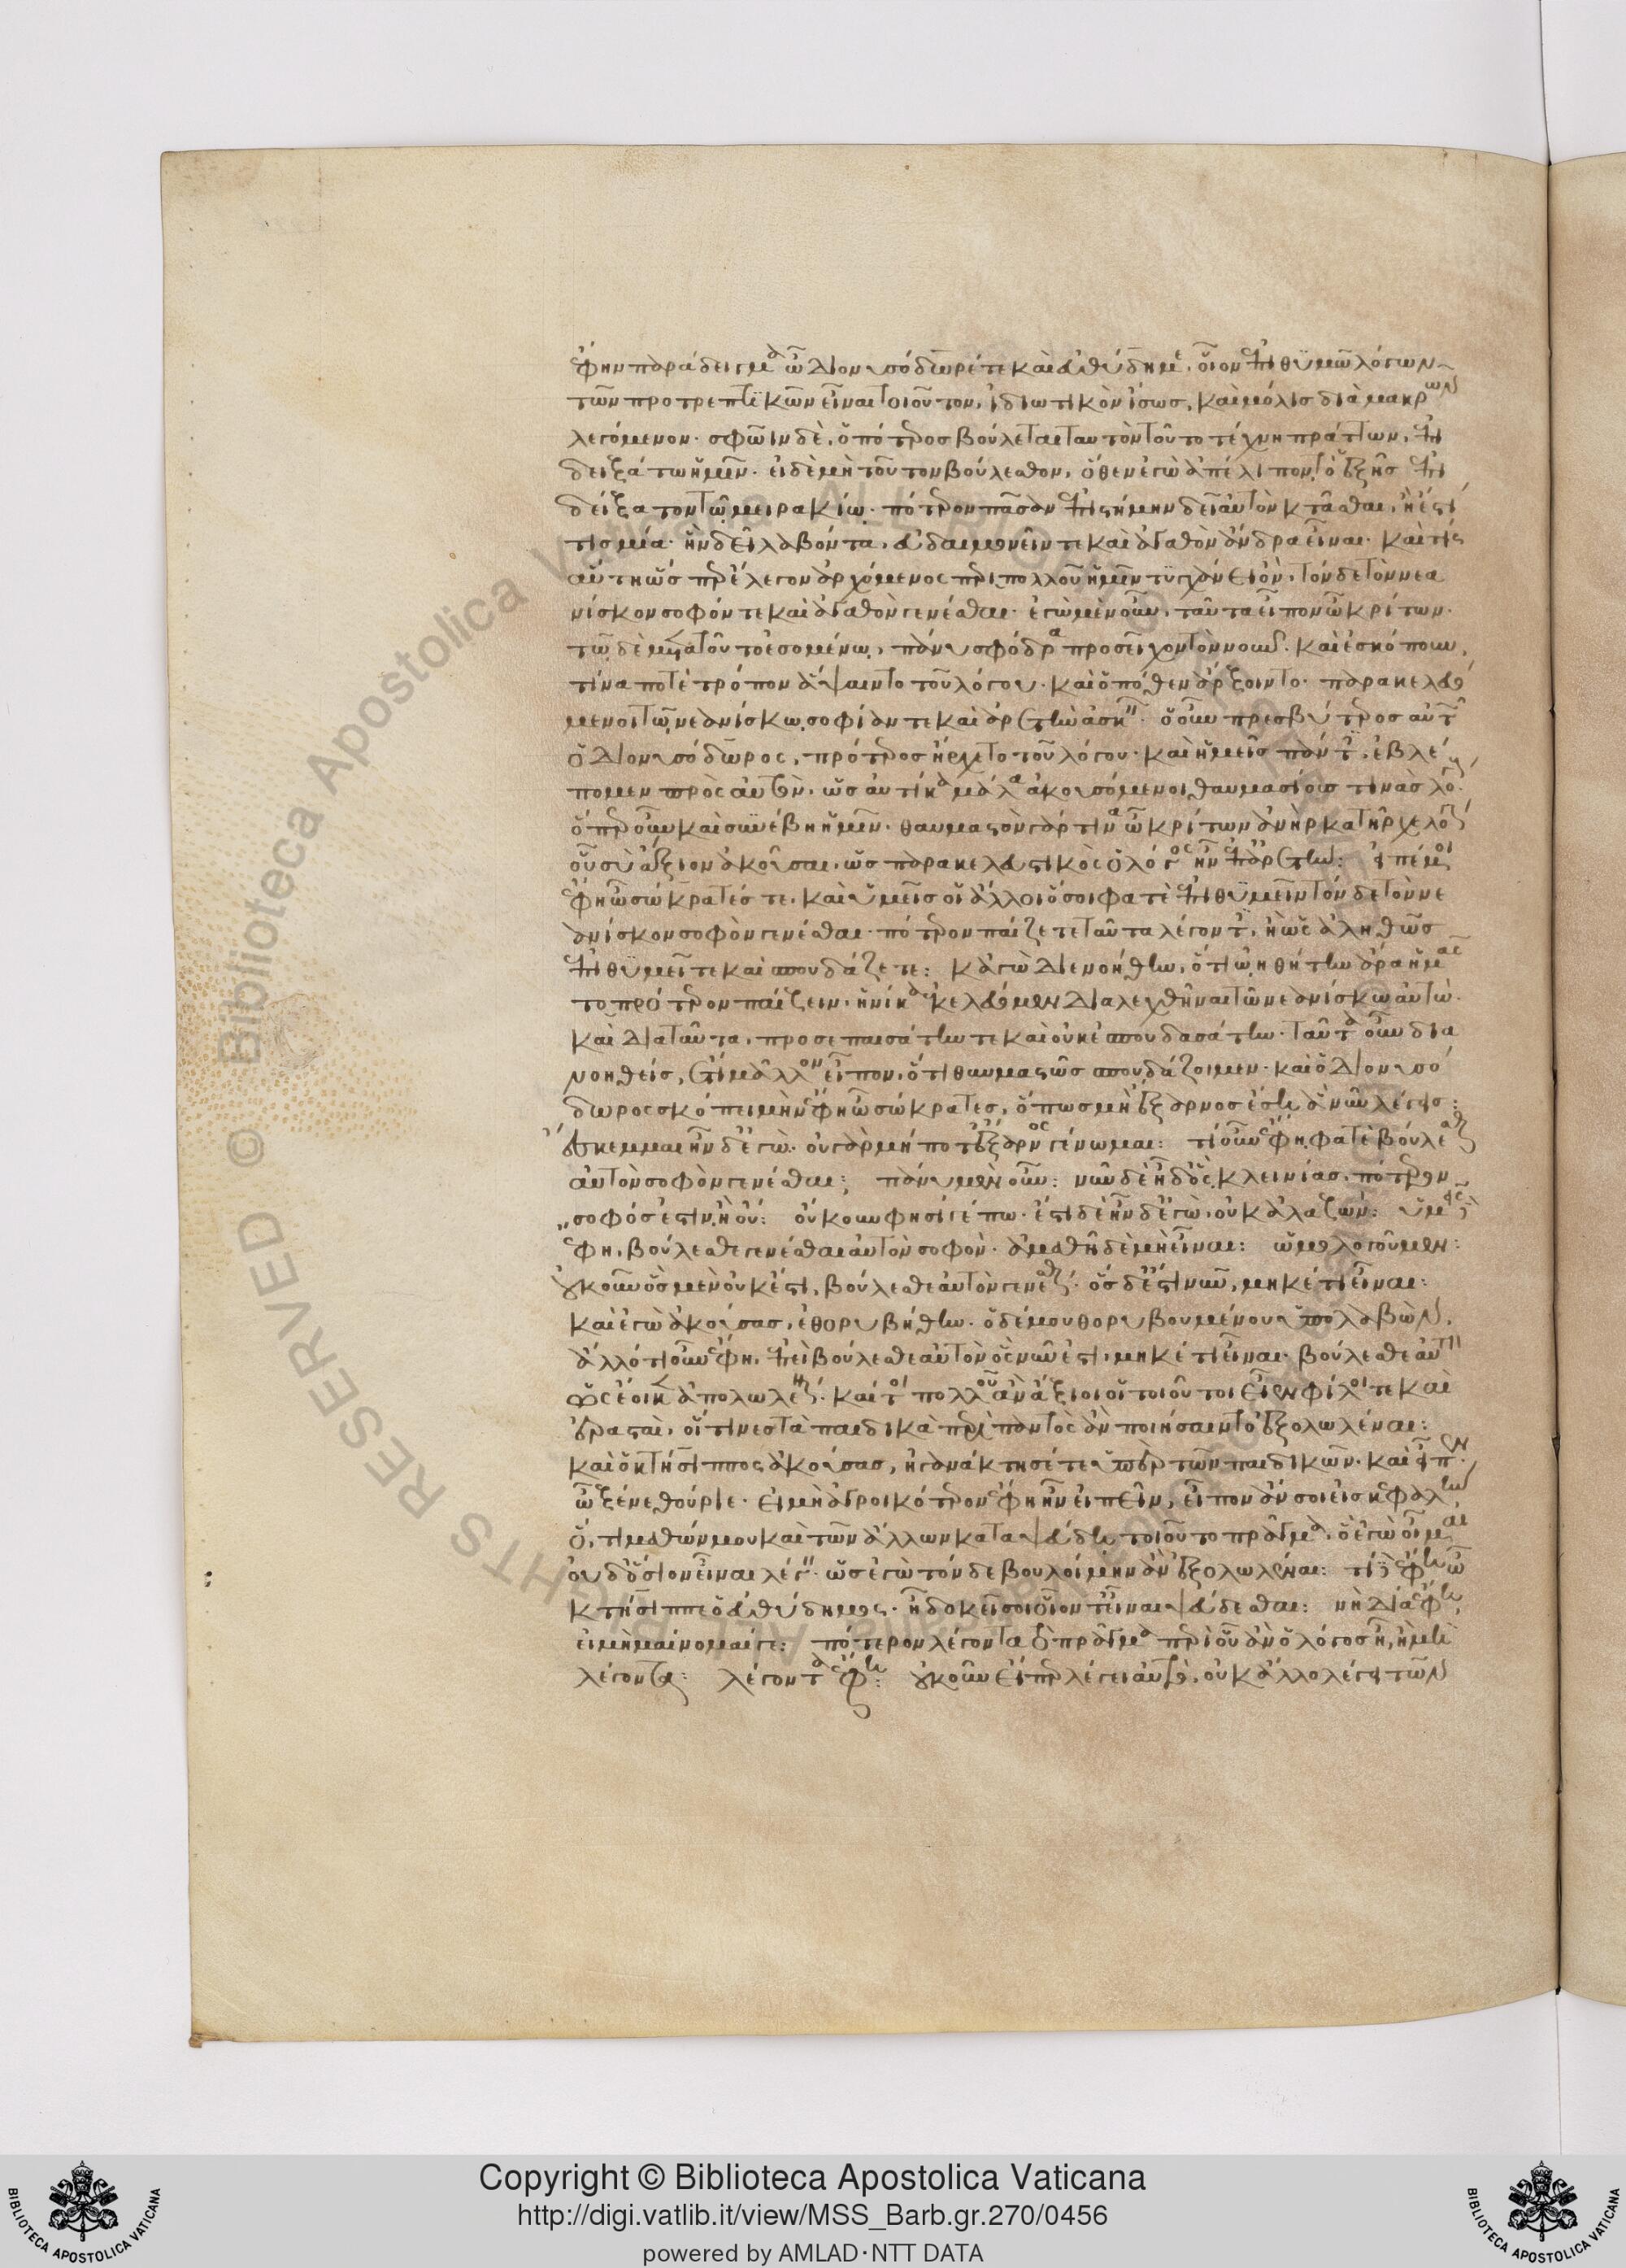 ἔφην παράδειγμα ὦ Διονυσόδωρέ τε καὶ εὐθύδημε. οἷον ἐπιθυμῶ λόγων
τῶν προτρεπτικῶν εἶναι τοιοῦτον. ἰδιωτικὸν ἴσως. καὶ μόλις διὰ μακρῶν
λεγόμενον. σφῶϊν δὲ. ὁπότερος βούλεται ταυτὸν τοῦτο τέχνη πράττων. ἐπι
δειξάτω ἡμῖν. εἰ δὲ μὴ τοῦτον βούλεσθον. ὅθεν ἐγὼ ἀπέλιπον. τὸ ἑξῆς ἐπι
δείξατον τῷ μειρακίῳ. πότερον πᾶσαν ἐπιστήμην δεῖ αὐτὸν κτᾶσθαι. ἢ ἔστι
τις μία. ἣν δεῖ λαβόντα. εὐδαιμονεῖν τε καὶ ἀγαθὸν ἄνδρα εἶναι. καὶ τίς
αὕτη ὡς περ ἔλεγον ἀρχόμενος περὶ πολλοῦ ἡμῖν τυγχάνει ὂν. τόνδε τὸν νεα
νίσκον σοφόν τε καὶ ἀγαθὸν γενέσθαι. ἐγὼ μὲν οὖν. ταῦτα εἶπον ὦ κρίτων.
τῷ δὲ μετὰ τοῦτο ἐσομένῳ. πάνυ σφόδρα προσεῖχον τὸν νοῦν. καὶ ἐσκόπουν.
τίνα ποτὲ τρόπον ἅψαιντο τοῦ λόγου. καὶ ὁπόθεν ἄρξοιντο. παρακελευό
μενοι τῷ νεανίσκῳ σοφίαν τε καὶ ἀρετὴν ἀσκεῖν. ὁ οὖν πρεσβύτερος αὐτῶν
ὁ Διονυσόδωρος. πρότερος ἤρχετο τοῦ λόγου. καὶ ἡμεῖς πάντες. ἐβλέ
πομεν πρὸς αὐτὸν. ὡς αὐτίκα μάλα ἀκουσόμενοι θαυμασίους τινὰς λόγους.
ὅπερ οὖν καὶ συνέβη ἡμῖν. θαυμαστὸν γάρ τινα ὦ κρίτων ἀνὴρ κατῆρχε λόγον
οὗ σὺ ἄξιον ἀκοῦσαι. ὡς παρακελευστικὸς ὁ λόγος ἦν ἐπ' ἀρετὴν: εἰπέ μοι
ἔφη ὦ σώκρατές τε. καὶ ὑμεῖς οἱ ἄλλοι ὅσοι φατὲ ἐπιθυμεῖν τόνδε τὸν νε
ανίσκον σοφὸν γενέσθαι. πότερον παίζετε ταῦτα λέγοντες. ἢ ὡς ἀληθῶς
ἐπιθυμεῖτε καὶ σπουδάζετε: κἀγὼ Διενοήθην. ὅτι ᾠηθήτην ἄρα ἡμᾶς
τοπρότερον παίζειν. ἡνίκα ἐκελεύομεν Διαλεχθῆναι τῷ νεανίσκῳ αὐτὼ.
καὶ Διαταῦτα. προσεπαισάτην τε καὶ οὐκ ἐσπουδασάτην. ταῦτα οὖν δια
νοηθείς, ἔτι μᾶλλον εἶπον. ὅτι θαυμαστῶς σπουδάζοιμεν. καὶ ὁ Διονυσό
δωρος σκόπει μὴν ἔφη ὦ σώκρατες. ὅπως μὴ ἔξαρνος ἔσῃ ἃ νῦν λέγεις:
ἔσκεμμαι ἦν δ' ἐγὼ. οὐ γὰρ μήποτ' ἔξαρνος γένωμαι: τί οὖν ἔφη. φατὲ βούλεσθαι
αὐτὸν σοφὸν γενέσθαι; πάνυ μὲν οὖν: νῦν δὲ ἦ δ' ὃς. κλεινίας. πότερον
σοφός ἐστιν ἢ οὔ: οὔκουν φησί γέ πω. ἔστι δὲ ἦν δ' ἐγὼ. οὐκ ἀλαζών: ὑμεῖς δὲ
ἔφη. βούλεσθε γενέσθαι αὐτὸν σοφὸν. ἀμαθῆ δὲ μὴ εἶναι: ὡμολογοῦμεν:
οὐκοῦν ὃς μὲν οὐκ ἔστι, βούλεσθε αὐτὸν γενέσθαι. ὃς δ' ἔστι νῦν, μηκέτι εἶναι:
καὶ ἐγὼ ἀκούσας. ἐθορυβήθην. ὁ δέ μου θορυβουμένου ὑπολαβὼν.
ἄλλο τι οὖν ἔφη. ἐπεὶ βούλεσθε αὐτὸν ὃς νῦν ἐστι. μηκέτι εἶναι. βούλεσθε αὐτὸν
ὡς ἔοικεν ἀπολωλέναι. καίτοι πολλοῦ ἂν ἄξιοι οἱ τοιοῦτοι εἶεν φίλοι τε καὶ
ἐρασταὶ. οἵτινες τὰ παιδικὰ περὶ παντὸς ἂν ποιήσαιντο ἐξολωλέναι:
καὶ ὁ κτήσιππος ἀκούσας, ἠγανάκτησέ τε ὑπὲρ τῶν παιδικῶν. καὶ εἶπεν.
ὦ ξένε θούριε. εἰ μὴ ἀγροικότερον ἔφη ἦν εἰπεῖν, εἶπον ἂν σοὶ εἰς κεφαλὴν
ὅ, τι μαθών μου καὶ τῶν ἄλλων καταψεύδῃ τοιοῦτο πρᾶγμα. ὃ ἐγὼ οἶμαι
οὐδ' ὅσιον εἶναι λέγειν. ὡς ἐγὼ τόνδε βουλοίμην ἂν ἐξολωλέναι: τί δὲ ἔφη ὦ
κτήσιππε ὁ εὐθύδημος. ἦ δοκεῖ σοι οἷόν τ' εἶναι ψεύδεσθαι: νὴ Δία ἔφη.
εἰ μὴ μαίνομαί γε: πότερον λέγοντα τὸ πρᾶγμα περὶ οὗ ἂν ὁ λόγος ᾖ, ἢ μὴ
λέγοντα: λέγοντα ἔφη: οὐκοῦν εἴπερ λέγει αὐτὸ. οὐκ ἄλλο λέγει τῶν
Copyright © Biblioteca Apostolica Vaticana
http://digi.vatlib.it/view/MSS_Barb.gr.270/0456
powered by AMLAD·NTT DATA